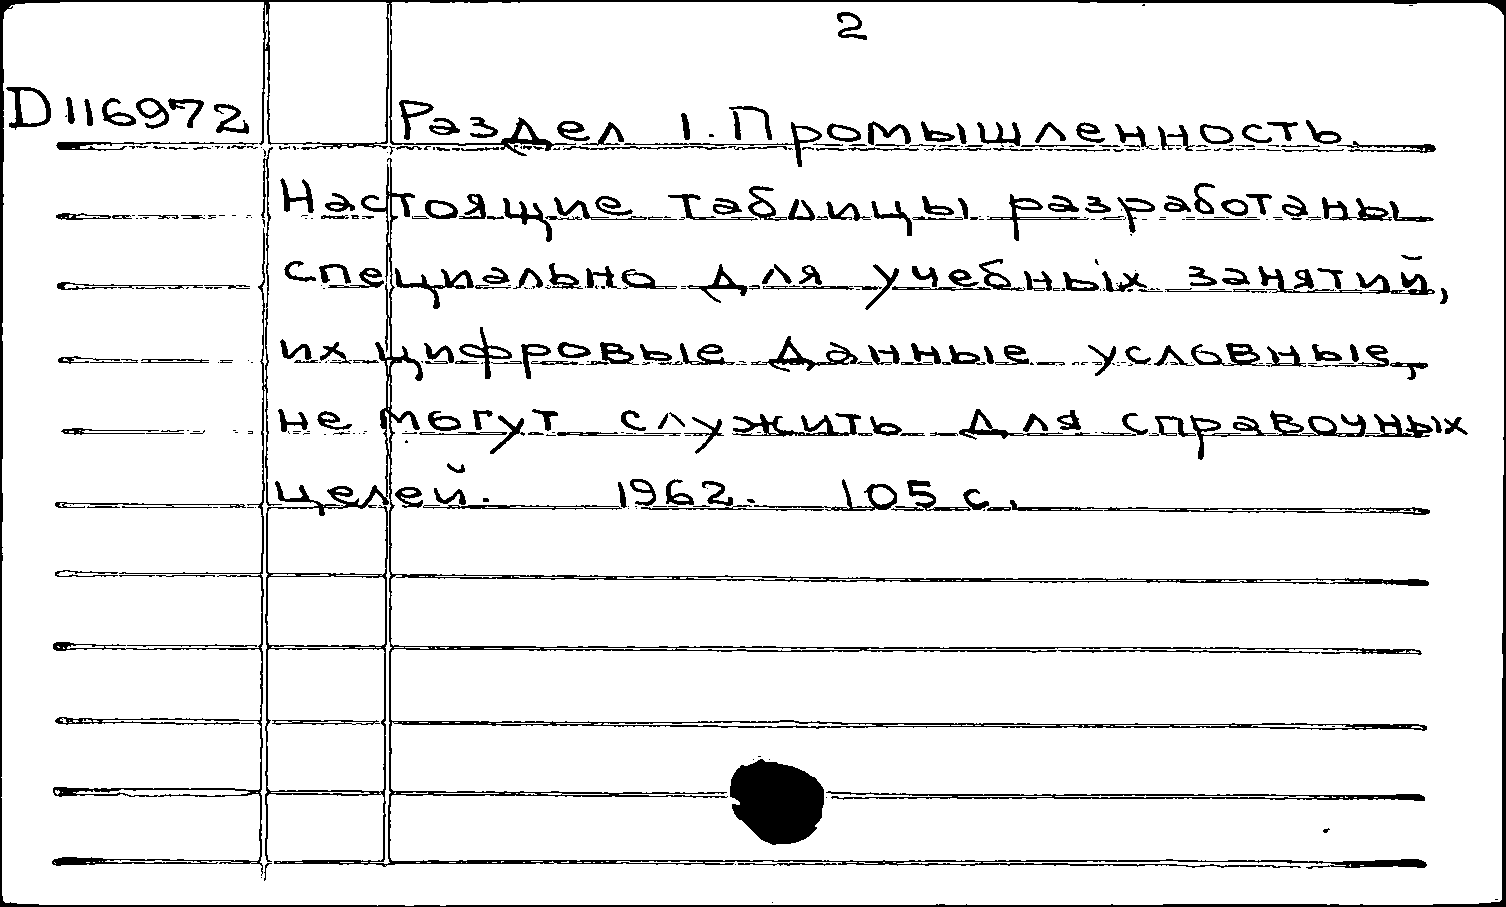 2
D116972 Раздел 1. Промышленность.
Настоящие таблицы разработаны
специально для учебных занятий,
их цифровые данные условные,
не могут служить для справочных
целей. 1962. 105 с.